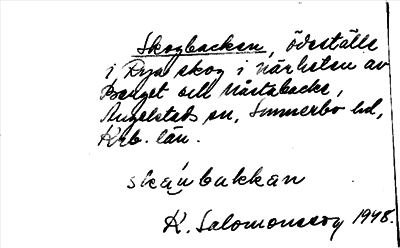 Skogbacken, ödeställe
i Rya skog i närheten av
Berget och Vårtabacke,
Angelstads sn, Sunnerbo hd,
Krb. län.
skáu̯bakkan
K. Salomonsson 1948.